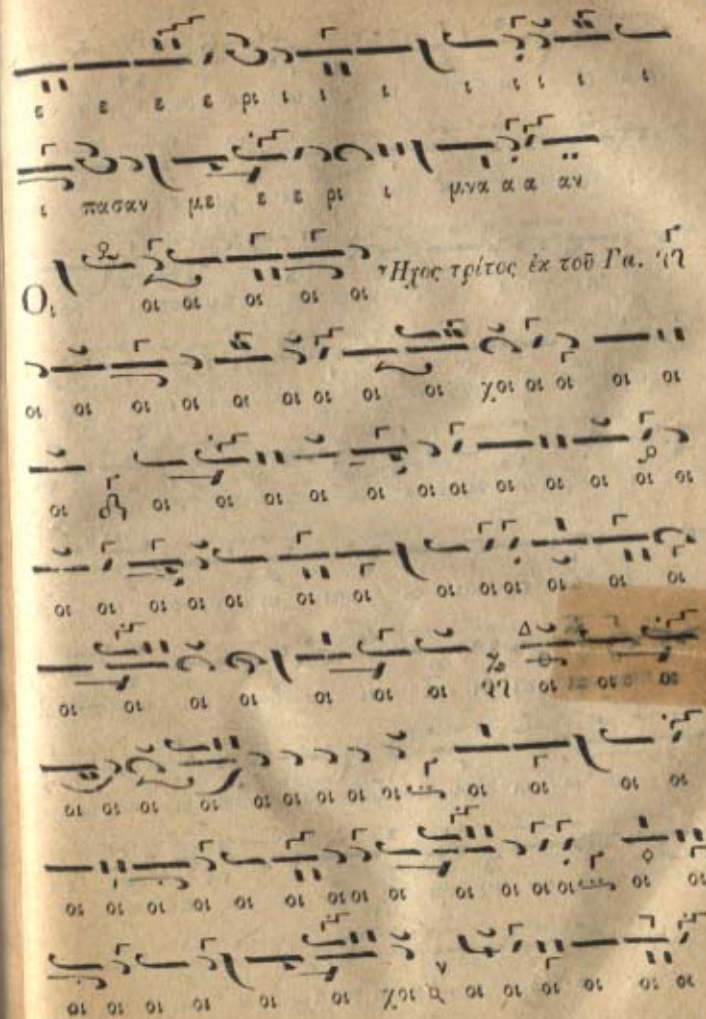 ε ε ε ε ρι ι ι ι ι ι ι ι ι
ι πασαν με ε ε ρι ι μνα α α αν
Οι οι οι οι οι οι Ἦχος τρίτος ἐκ τοῦ Γα.
οι οι οι οι οι οι οι οι οι χοι οι οι οι οι
οι οι οι οι οι οι οι οι οι οι οι οι
οι οι οι οι οι οι οι οι οι οι οι οι
οι οι οι οι οι οι οι οι οι οι
οι οι οι οι οι οι οι οι οι οι οι οι οι
οι οι οι οι οι οι οι οι οι οι οι οι οι οι
οι οι οι οι οι οι χοι οι οι οι οι οι οι οι